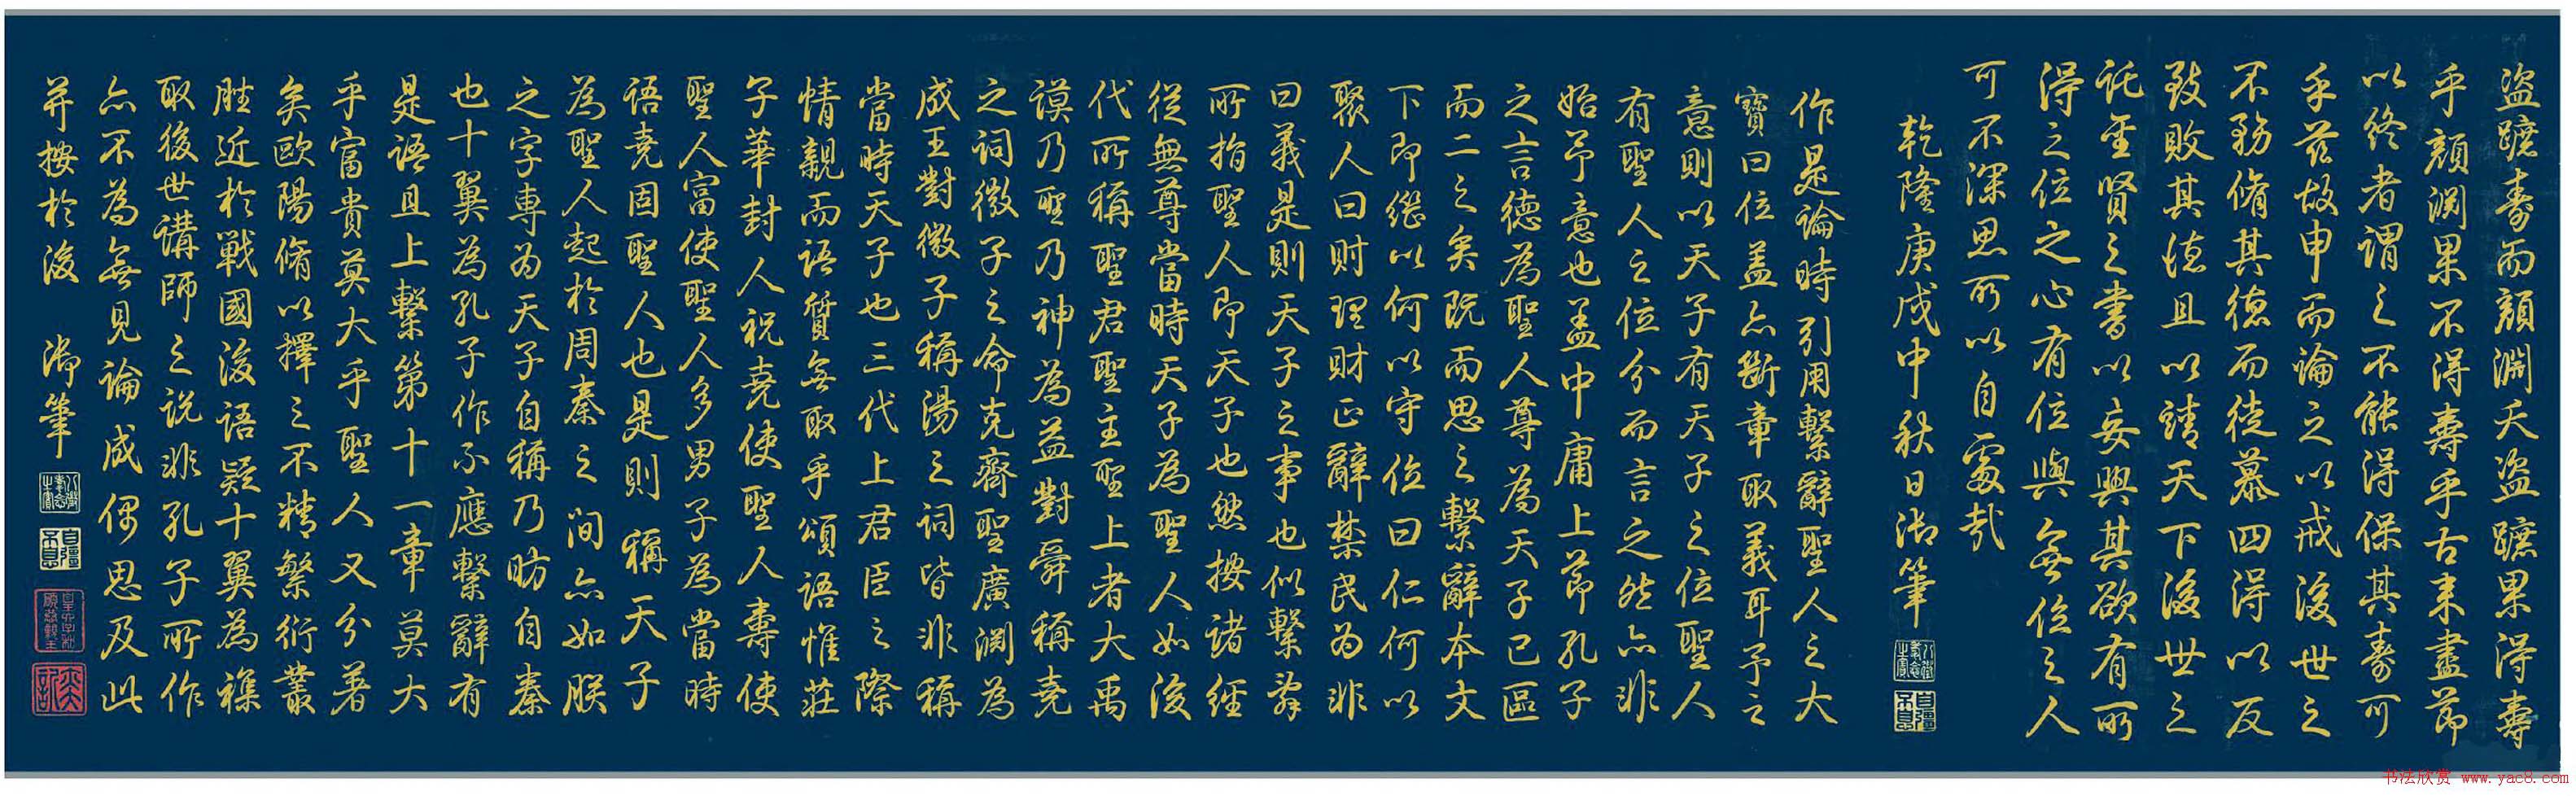 盜蹠壽而顏淵夭盜蹠果得壽
乎顏淵果不得壽乎古来盡節
以終者謂之不能得保其壽可
乎茲故申而論之以戒後世之
不務脩其德而徒慕四得以反
致敗其德且以靖天下後世之
託聖賢之書以妄興其欲有所
得之位之心有位與無位之人
可不深思所以自處哉
乾隆庚戌中秋日御筆
作是論時引用繫辭聖人之大
寶曰位盖亦斷章取義耳予之
意則以天子有天子之位聖人
有聖人之位分而言之然亦非
始予意也盖中庸上節孔子
之言德為聖人尊為天子已區
而二之矣既而思之繫辭本文
下即繼以何以守位曰仁何以
聚人曰財理財正辭禁民為非
曰義是則天子之事也似繫辞
所指聖人即天子也然按諸經
從無尊當時天子為聖人如後
代所稱聖君聖主聖上者大禹
謨乃聖乃神為益對舜稱堯
之詞微子之命克齊聖廣淵為
成王對微子稱湯之詞皆非稱
當時天子也三代上君臣之際
情親而語質無取乎頌語惟莊
子華封人祝堯使聖人壽使
聖人富使聖人多男子為當時
語堯固聖人也是則稱天子
為聖人起於周秦之間亦如朕
之字專为天子自稱乃昉自秦
也十翼為孔子作不應繫辭有
是語且上繫第十一章莫大
乎富貴莫大乎聖人又分著
矣歐陽脩以擇之不精繁衍叢
脞近於戰國後語疑十翼為襍
取後世講師之说非孔子所作
亦不為無見論成偶思及此
并按於後 御筆
自彊不息
自彊不息
书法欣赏 www.yac8.com